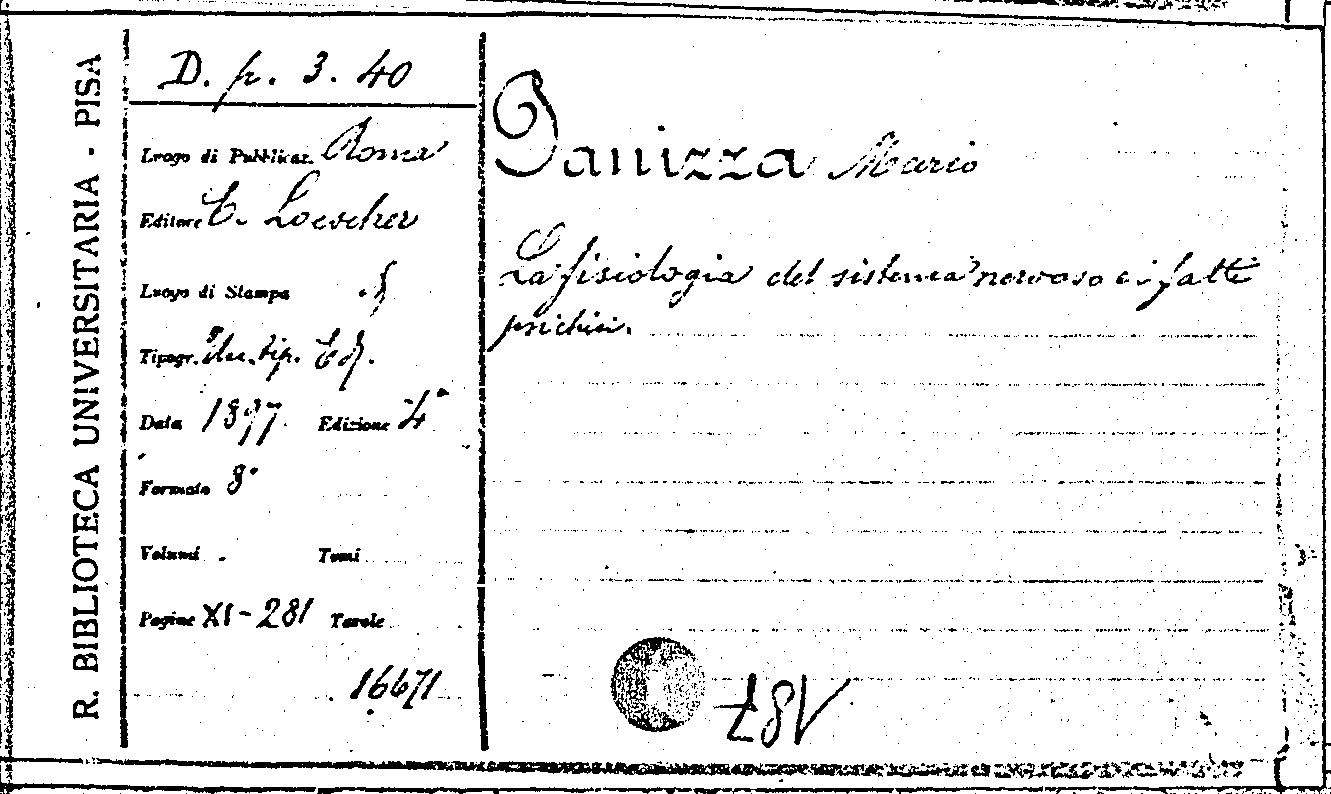 R. BIBLIOTECA UNIVERSITARIA - PISA
D. p. 3. 40
Luogo di Pubblicaz. Roma
Editore E. Loescher
Luogo di Stampa
Tipogr. tip.
Data 1897 Edizione 4ª
Formato 8°
Volumi Tomi
Pagine XI-281 Tavole
16671
Panizza Mario
La fisiologia del sistema nervoso e i fatti
psichici.